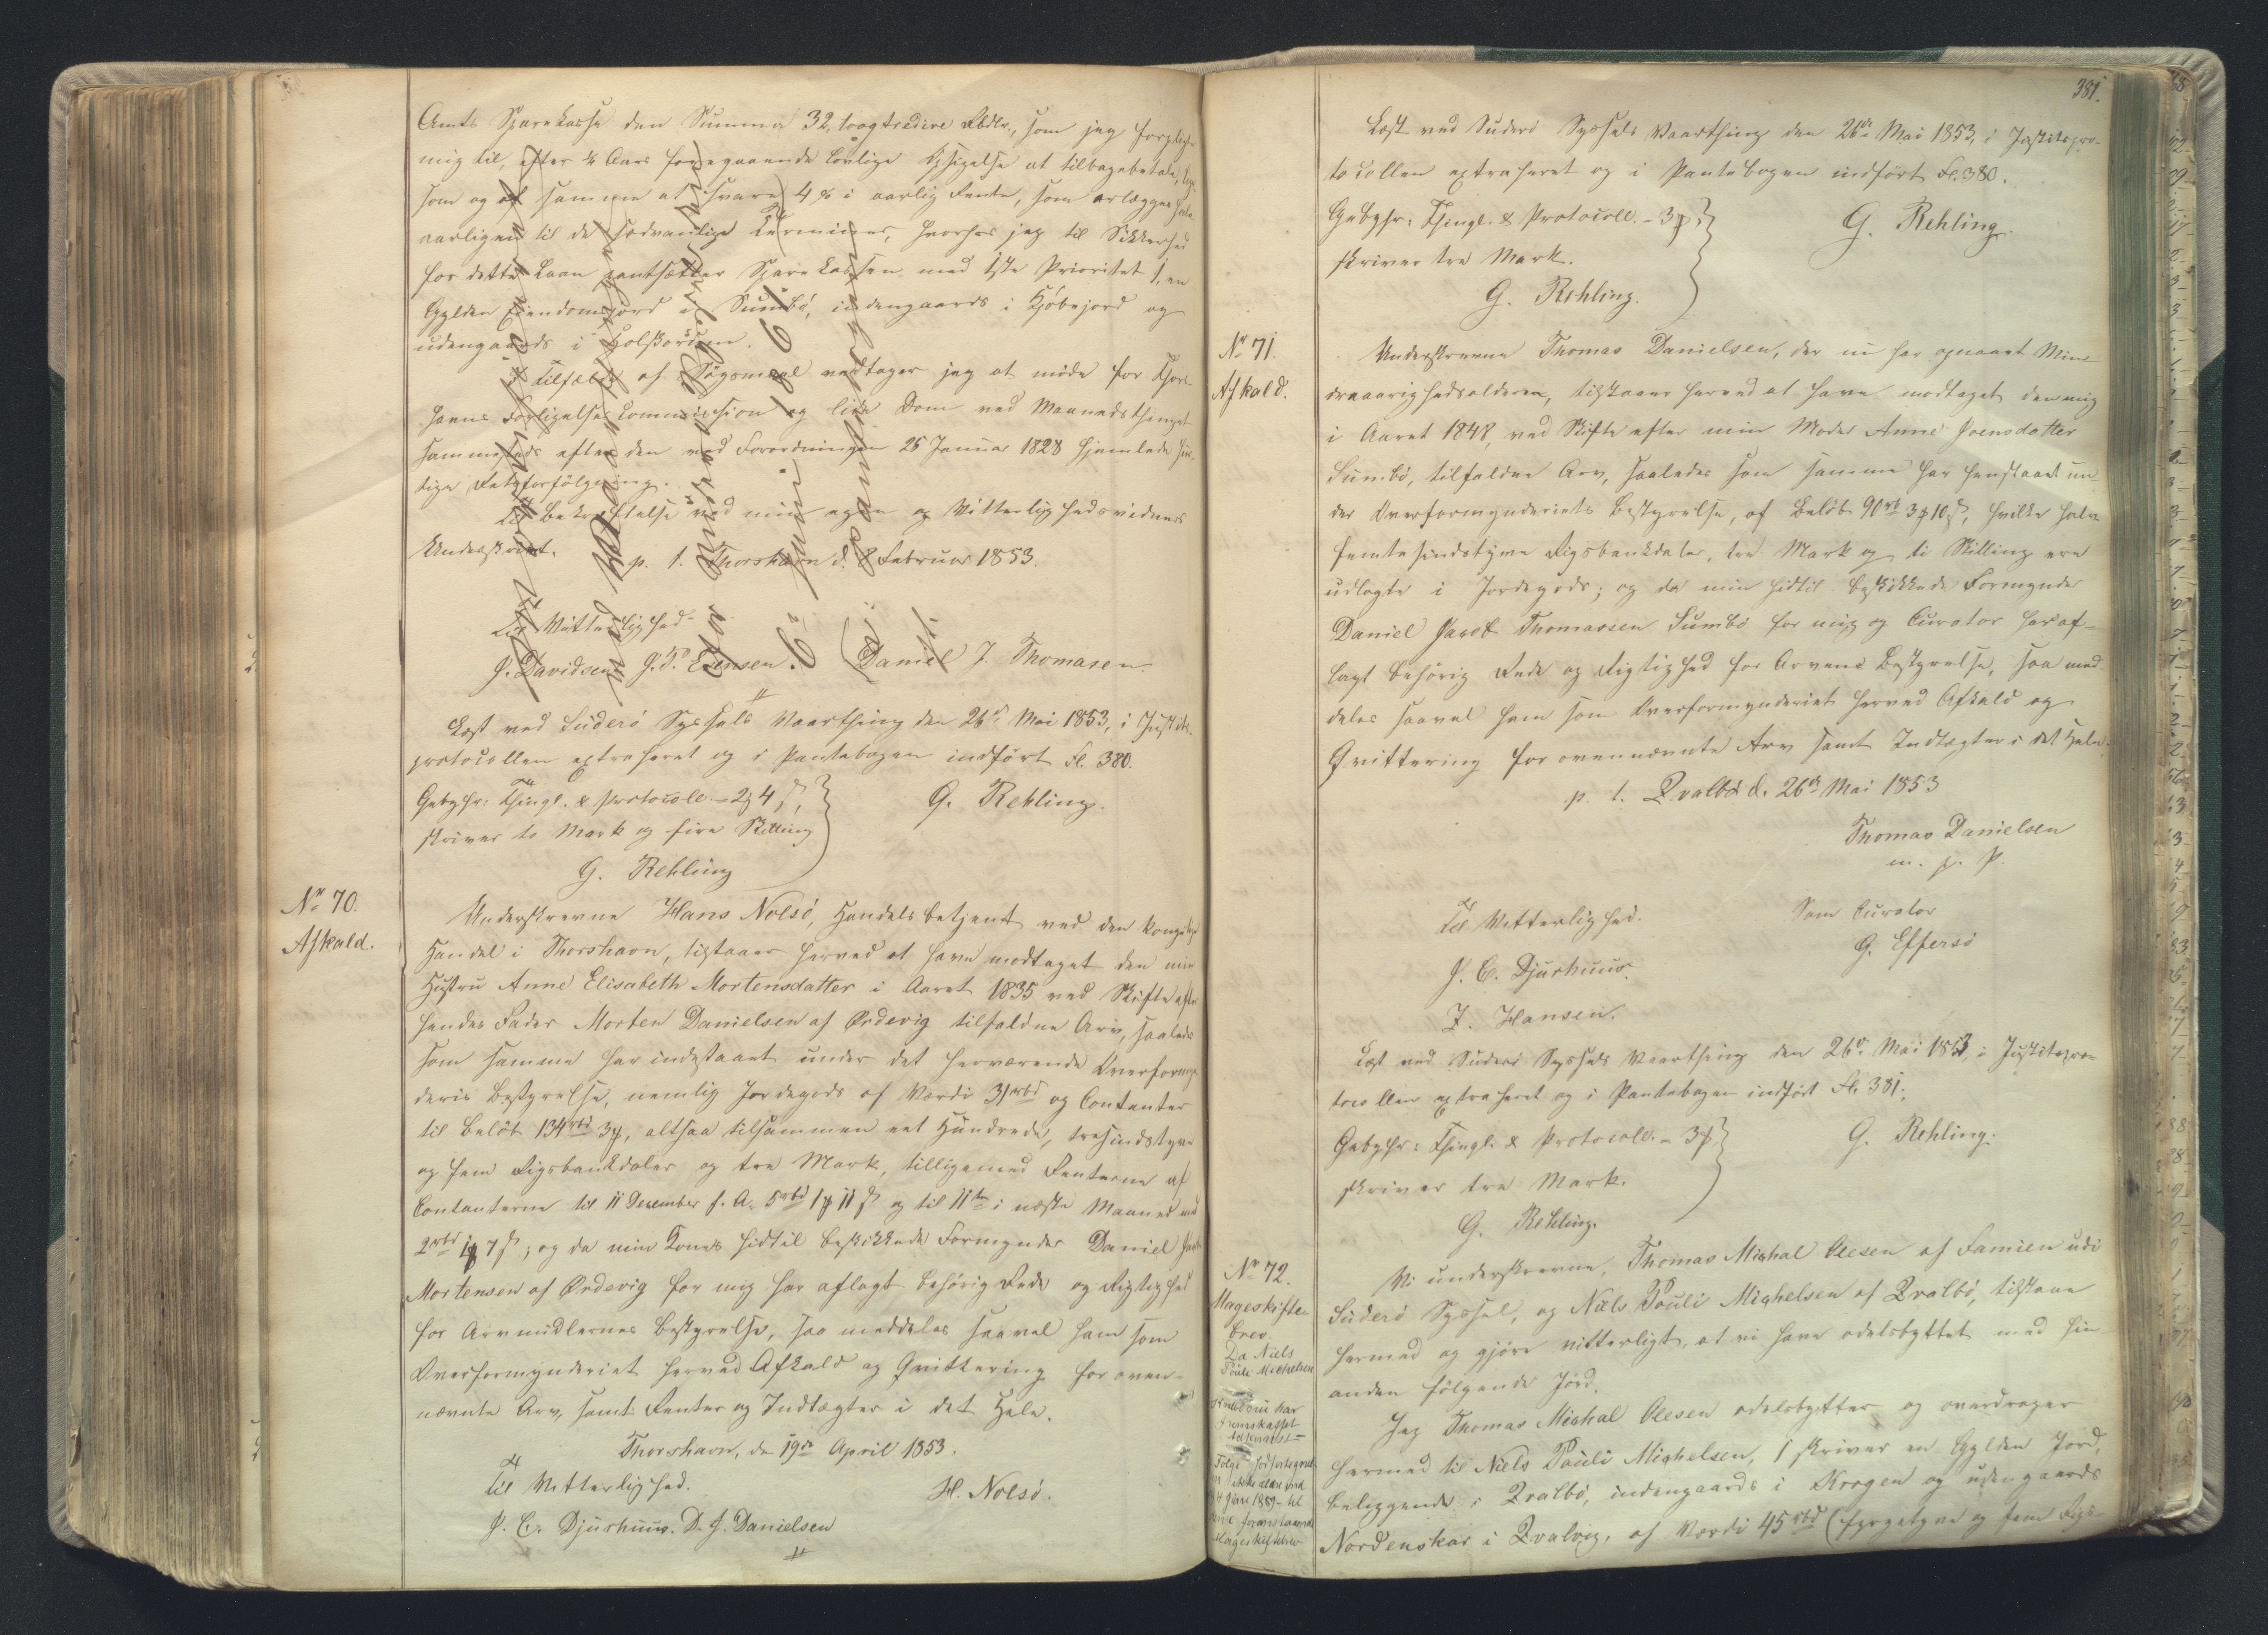 Amts Sparekasse den Summa 32, toogtredive Rbdlr., som jeg forpligter
mig til, efter ¼ Aars foregaaende lovlige Opsigelse at tilbagebetale, lige
som og af samme at svare 4 % i aarlig Rente, som erlægges halv
aarligen til de sædvanlige Terminer, hvorhos jeg til Sikkerhed
for dette Laan pantsætter Sparekassen med 1ste Prioritet 1, en
Gylden Eiendomsjord i Sumbö, indengaards i Kjöbejord og
udengaards i
I Tilfælde af Sögsmaal vedtager jeg at möde for Thors-
havns Forligelses Commission og lide Dom ved Maanedsthinget
sammesteds efter den ved Forordningen 25 Januar 1828 hjemlede hur-
tige Retsforfölgning.
Til Bekræftelse ved min egen og Vitterlighedsvidners
Underskrivt.
p. t. Thorshavn d. 8 Februar 1853.
Til Vitterlighed
J. Davidsen J. P. Daniel J. Thomasen.
Læst ved Suderö Syssels Vaarthing den 26de Mai 1853, i Justits-
protocollen extraheret og i Pantebogen indfört Fl. 380.
Gebyhr: Thingl. & Protocoll. - 2 4 ,
skriver to Mark og fire Skilling
G. Rehling.
G. Rehling
No 70.
Afkald.
Underskrevne Hans Nolsö, Handelsbetjent ved den kongelige
Handel i Thorshavn, tilstaaer herved at have modtaget den min
Hustru Anne Elisabeth Mortensdatter i Aaret 1835 ved Skifte efter
hendes Fader Morten Danielsen af Ördevig tilfaldne Arv, saaledes
som samme har indestaaet under det herværende Overformyn-
deries Bestyrelse, nemlig Jordegods af Værdi 31 rbd og Contanter
til Belöb 134 rbd 3, altsaa tilsammen eet Hundrede, tresindstyve
og fem Rigsbankdaler og tre Mark, tilligemed Renterne af
Contanterne til 11 December f. A. 5 rbd 1 11 og til 11te i næste Maaned med
2 rbd 1 7 ; og da min Kones hidtil beskikkede Formynder Daniel
Mortensen af Ördevig for mig har aflagt behörig Rede og Rigtighed
for Arvmidlernes Bestyrelse, saa meddeles saavel ham som
Overformynderiet herved Afkald og Qvittering for oven-
nævnte Arv, samt Renter og Indtægter i det Hele.
Thorshavn, den 19de April 1853.
Til Vitterlighed.
H. Nolsö.
J. C. Djurhuus. D. J. Danielsen
381.
Læst ved Suderö Syssels Vaarthing den 26de Mai 1853, i Justitspro-
tocollen extraheret og i Pantebogen indfört Fl. 380.
Gebyhr: Thingl. & Protocoll. - 3
skriver tre Mark.
G. Rehling.
G. Rehling.
No 71.
Afkald.
Underskrevne Thomas Danielsen, der nu har opnaaet Min-
dreaarighedsalderen, tilstaaer herved at have modtaget den mig
i Aaret 1848, ved Skifte efter min Moder Anne Joensdatter
Sumbö, tilfaldne Arv, saaledes som samme har henstaaet un-
der Overformynderiets Bestyrelse, af Belöb 90 rb 3 10, hvilke halv-
femtesindstyve Rigsbankdaler, tre Mark og ti Skilling ere
udlagte i Jordegods; og da min hidtil beskikkede Formynder
Daniel Jacob Thomassen Sumbö for mig og Curator har af-
lagt behörig Rede og Rigtighed for Arvens Bestyrelse, saa med-
deles saavel ham som Overformynderiet herved Afkald og
Qvittering for ovennævnte Arv samt Indtægter i det Hele.
p. t. Qvalbö d. 26de Mai 1853
Thomas Danielsen
m. p. P.
Til Vitterlighed.
Som Curator
G. Effersö
J. C. Djurhuus.
J. Hansen.
Læst ved Suderö Syssels Vaarthing den 26de Mai 1853, i Justitspro-
tocollen extraheret og i Pantebogen indfört Fl. 381.
Gebyhr: Thingl. & Protocoll. - 3
skriver tre Mark.
G. Rehling.
G. Rehling.
No 72.
Mageskifte-
brev.
Da Niels
Pauli Michelsen
Vi underskrevne, Thomas Michal Olesen af Famien udi
Suderö Syssel, og Niels Pauli Michelsen af Qvalbö, tilstaae
hermed og gjöre vitterligt, at vi have odelsbyttet med hin-
anden fölgende Jord.
Jeg Thomas Michal Olesen odelsbytter og overdrager
hermed til Niels Pauli Michelsen, 1 skriver en Gylden Jord,
beliggende i Qvalbö, indengaards i Krogen og udengaards
Nordenskar i Qvalvig, af Værdi 45 rbd (fyrgetyve og fem Rigs-